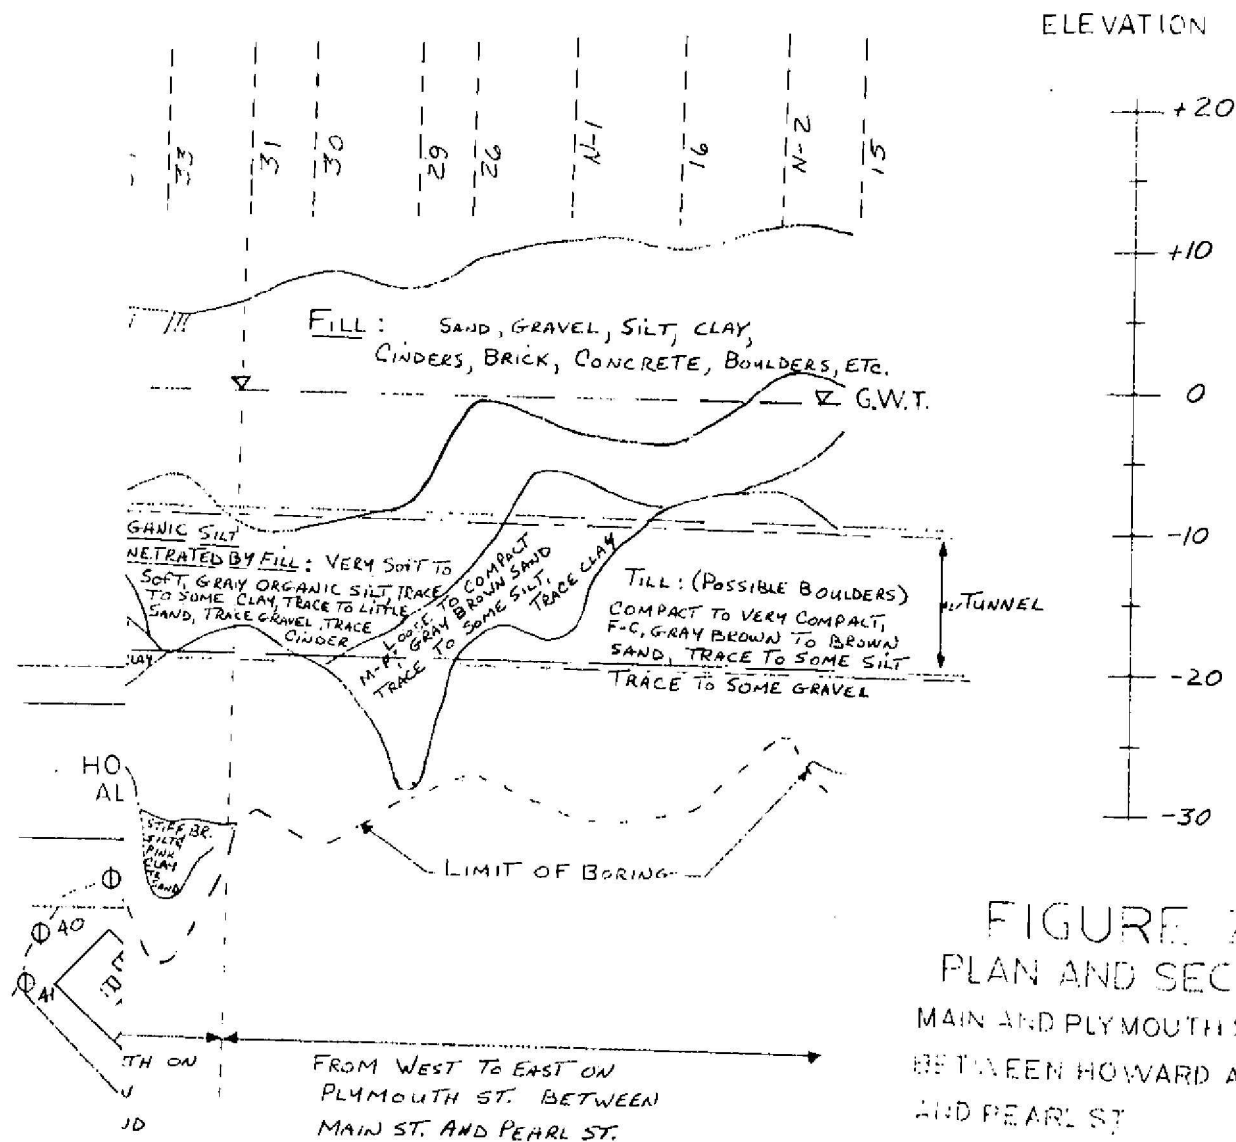 ELEVATION
33
31
30
29
26
N-1
16
N-2
15
+20
+10
0
-10
-20
-30
FILL: SAND, GRAVEL, SILT, CLAY,
CINDERS, BRICK, CONCRETE, BOULDERS, ETC.
G.W.T.
GANIC SILT
NETRATED BY FILL: VERY SOFT TO
SOFT, GRAY ORGANIC SILT, TRACE
TO SOME CLAY, TRACE TO LITTLE
SAND, TRACE GRAVEL, TRACE
CINDER
LAY
LOOSE TO COMPACT
M-F, GRAY BROWN SAND
TRACE TO SOME SILT,
TRACE CLAY
TILL: (POSSIBLE BOULDERS)
COMPACT TO VERY COMPACT,
F-C, GRAY BROWN TO BROWN
SAND, TRACE TO SOME SILT
TRACE TO SOME GRAVEL
TUNNEL
HO
AL
STIFF, BR.
SILTY
PINK
CLAY
TR
SAND
LIMIT OF BORING
40
41
TH ON
FROM WEST TO EAST ON
PLYMOUTH ST. BETWEEN
MAIN ST. AND PEARL ST.
FIGURE
PLAN AND SEC
MAIN AND PLYMOUTH S
BETWEEN HOWARD A
AND PEARL ST